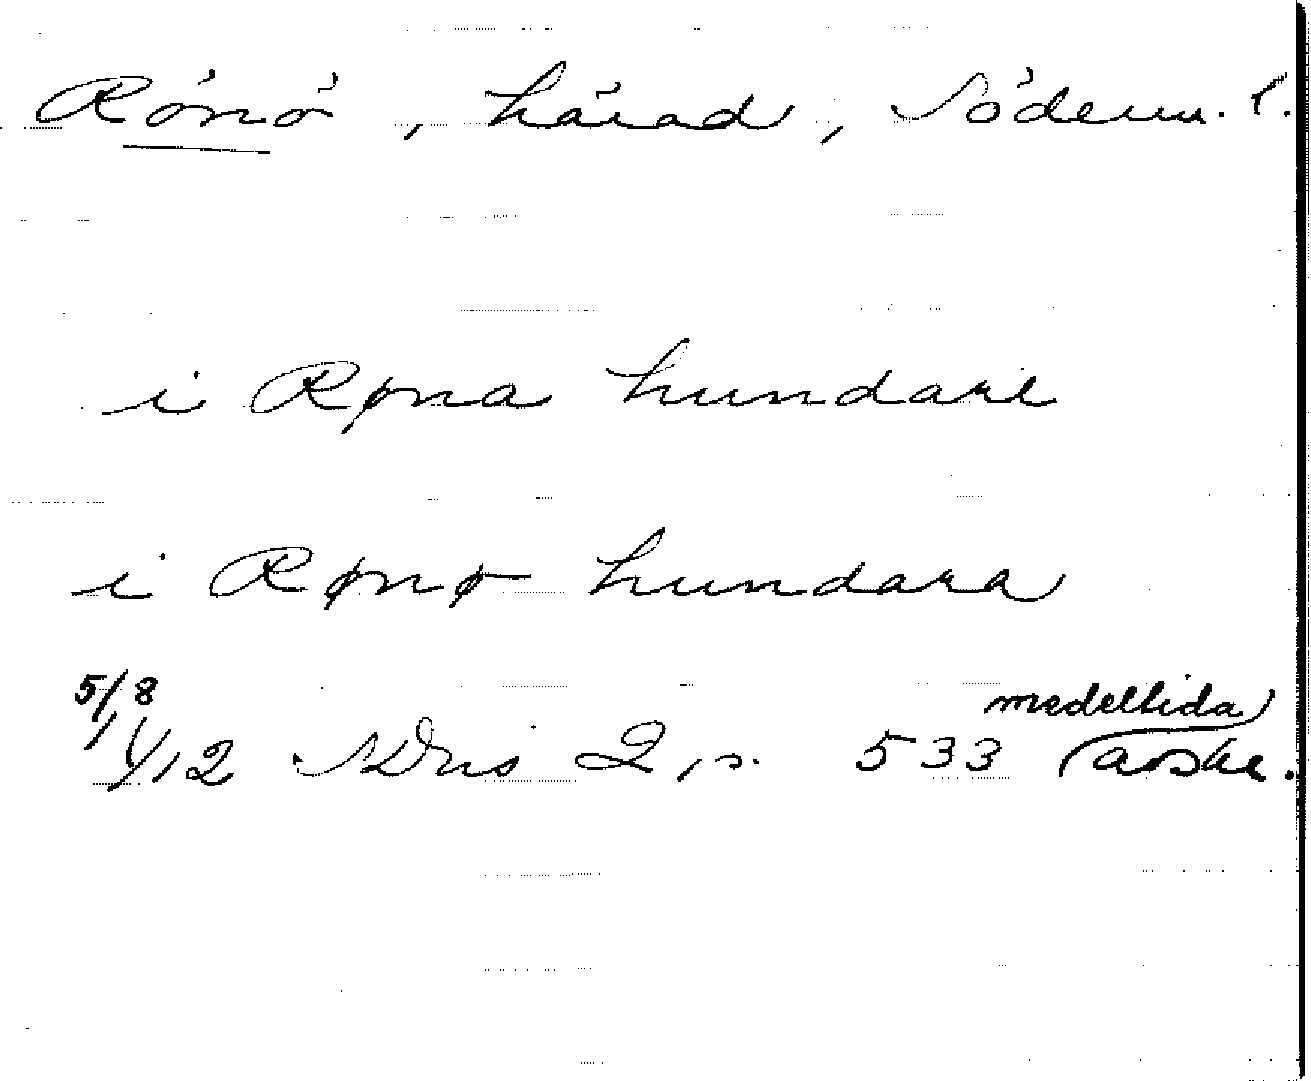 Rönö, härad, Söderm. l.
i Røna hundare
i Rønø hundara
5/8
medeltida
1/12 SDns 2, s. 533 avskr.